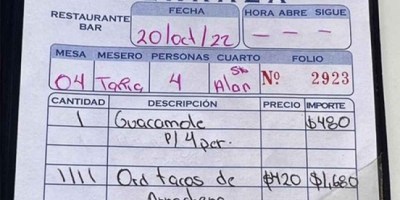 RESTAURANTE BAR
FECHA
20/oct/22
HORA ABRE SIGUE
MESA MESERO PERSONAS CUARTO FOLIO
04 4 Alan Nº 2923
CANTIDAD DESCRIPCIÓN PRECIO IMPORTE
1 Guacamole $480
p/ 4 per.
1111 Ord tacos de $420 $1,680